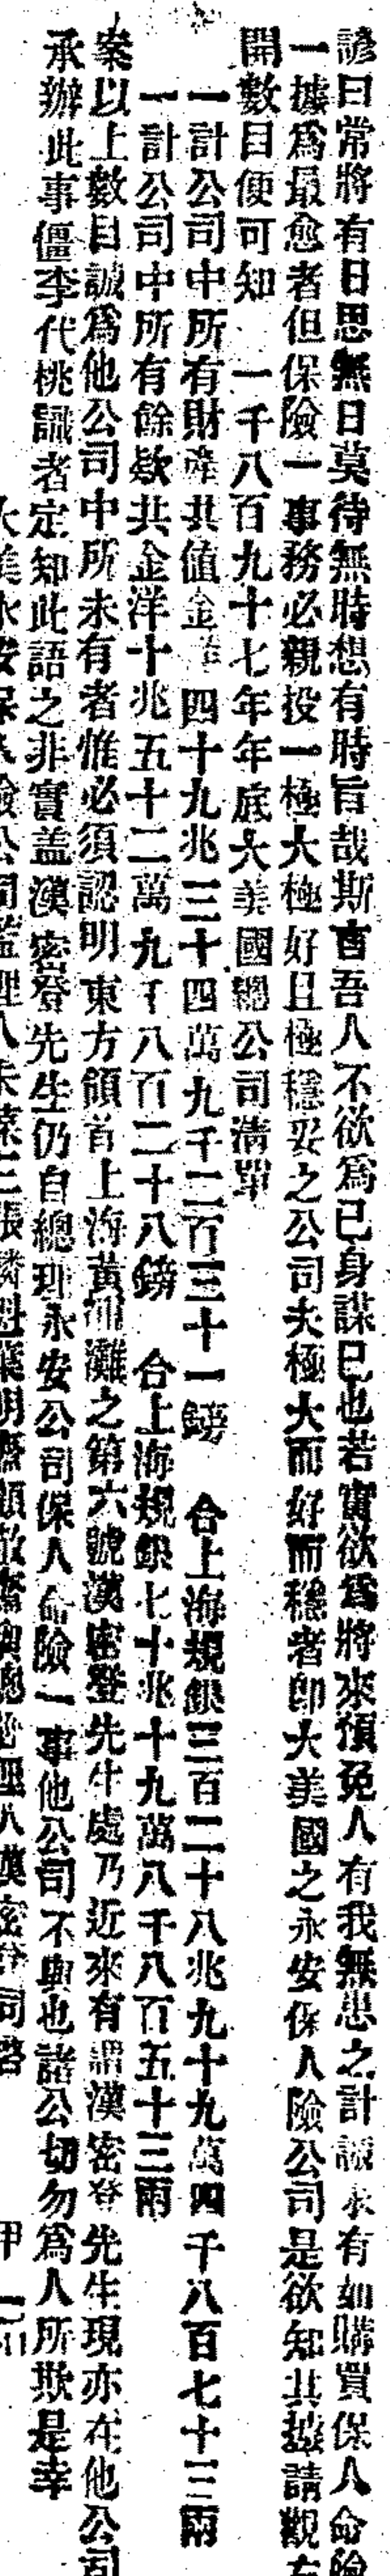 諺曰常將有日思無日莫待無時想有時旨哉斯言吾人不欲爲已身謀已也若實欲爲將來預免人有我無患之計誠未有如購買保人命險
一據爲最愈者但保險一事務必親投一極大極好且極穩妥之公司夫極大而好而穩者卽大美國之永安保人險公司是欲知其據請觀左
開數目便可知　一千八百九十七年年底大美國總公司清單
一計公司中所有財產共值金洋四十九兆三十四萬九千二百三十一鎊　合上海規銀三百二十八兆九十九萬四千八百七十三兩
一計公司中所有餘欵共金洋十兆五十二萬九千八百二十八鎊　合上海規銀七十兆十九萬八千八百五十三兩
案以上數目誠爲他公司中所未有者惟必須認明東方領首上海黃浦灘之第六號漢密登先生處乃近來有謂漢密登先生現亦在他公司
承辦此事僵李代桃識者定知此語之非實蓋漢密登先生仍自總理永安公司保人命險一事他公司不與也諸公切勿爲人所欺是幸
大美永安保人險公司監理人朱葆三張麟魁葉明齋顧敬齋與總理人漢密登同啓